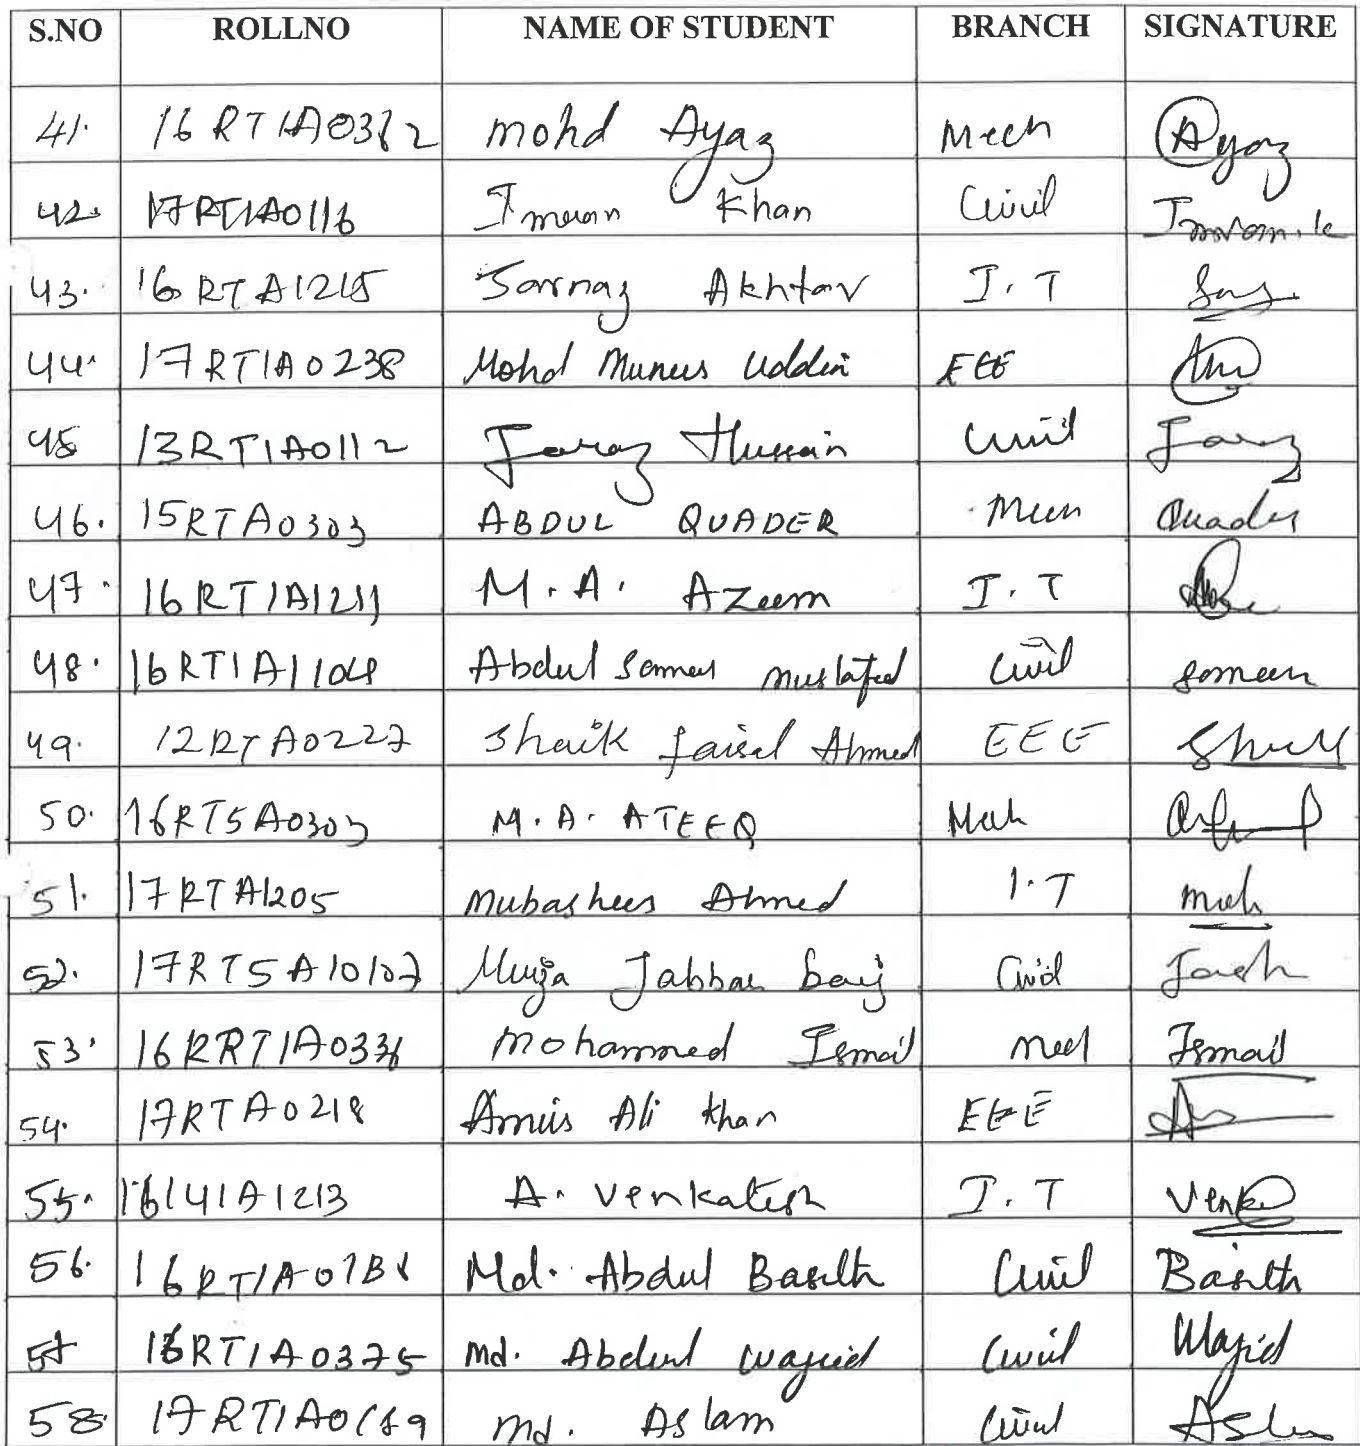 S.NO ROLLNO NAME OF STUDENT BRANCH SIGNATURE
41. 16RT1A0362 Mohd Ayaz Mech Ayaz
42. 17RT1A0116 Imran Khan Civil Imran.k
43. 16RTA1215 Sarnaz Akhtar I.T
44. 17RT1A0238 Mohd Munees Uddin EEE
45 13RT1A0112 Faraz Hussain Civil Faraz
46. 15RTA0303 ABDUL QUADER Mech Quader
47. 16RT1A1211 M.A. Azeem I.T
48. 16RT1A1104 Abdul Sameer Mustafed Civil Sameer
49. 12RTA0227 Shaik faisal Ahmed EEE
50. 16RT5A0303 M.A. ATEEQ Mech
51. 17RTA1205 Mubasheer Ahmed I.T
52. 17RT5A10107 Mirza Jabbar baig Civil
53. 16RRT1A0336 Mohammed Ismail Mech Ismail
54. 17RTA0218 Amir Ali Khan EEE
55. 16141A1213 A. Venkatesh I.T
56. 16RT1A01B8 Md. Abdul Basith Civil Basith
57 16RT1A0375 Md. Abdul Wajid Civil Wajid
58 17RT1A01 Md. Aslam Civil